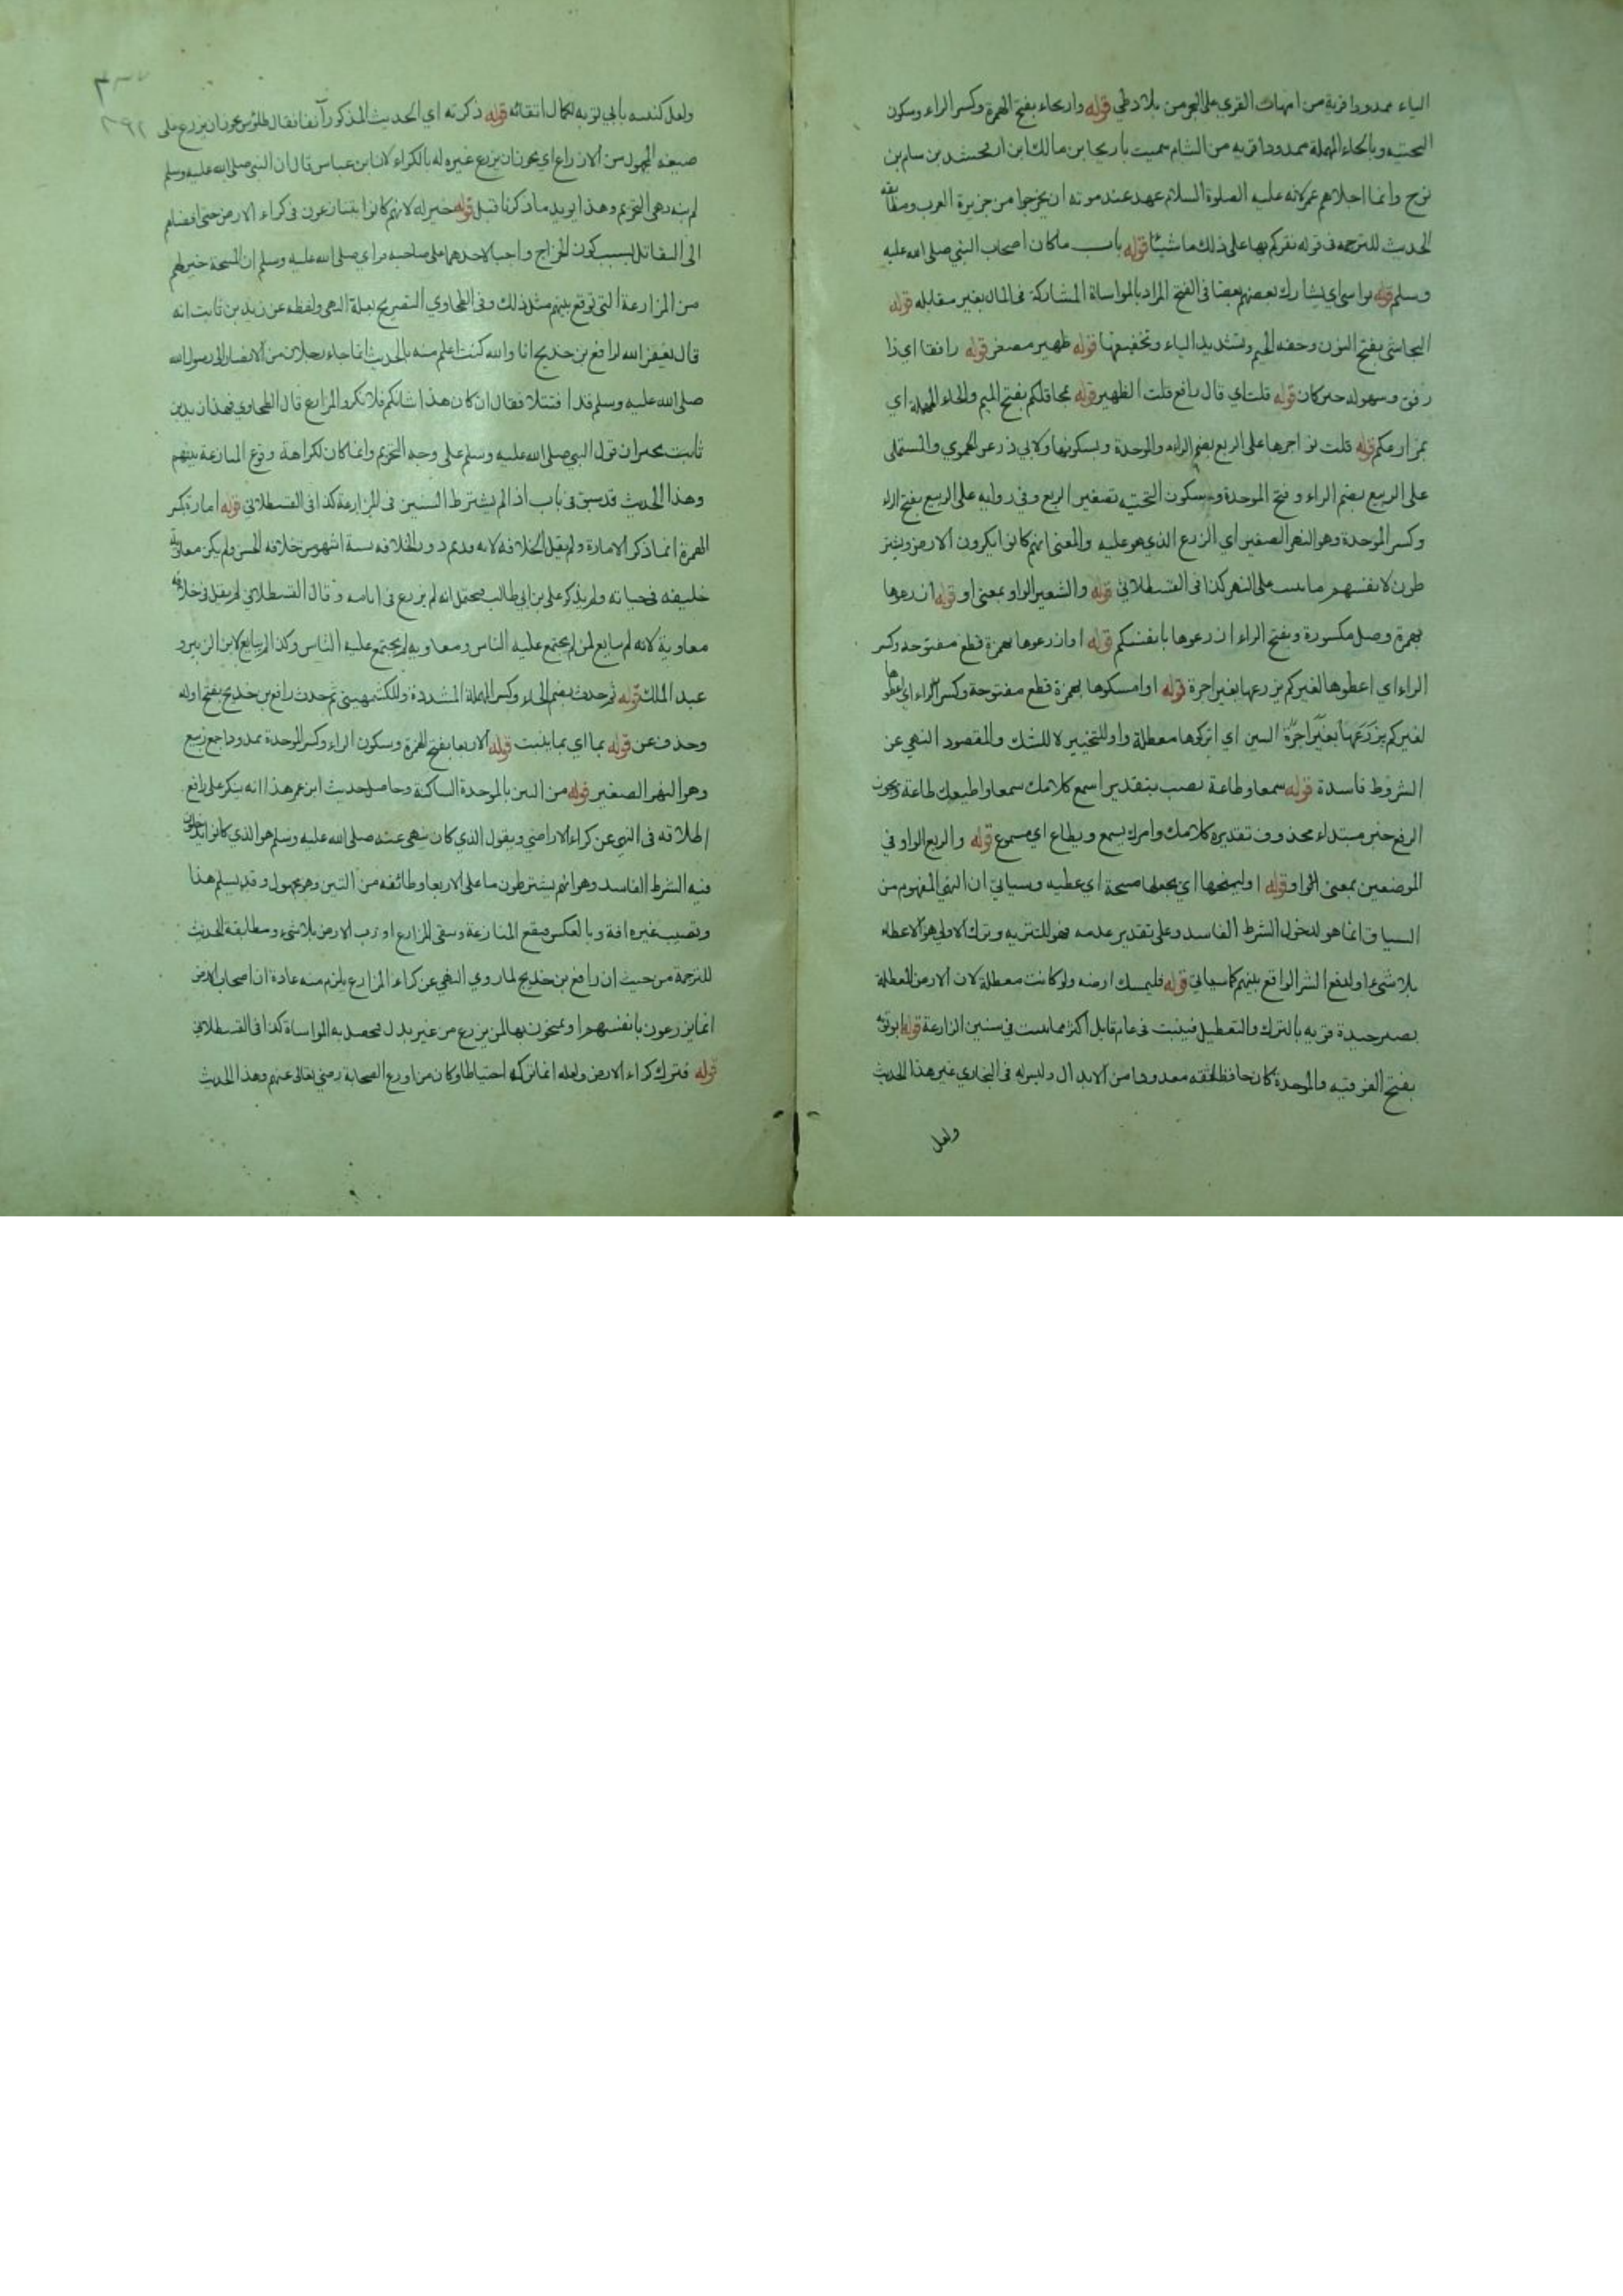 الياء ممدودا قرية من امهات القرى على البحر من بلاد طي قوله واريحاء بفتح الهمزة وكسر الراء وسكون
التحتيه وبالحاء المهملة ممدودا قريه من الشام سميت باريحا بن مالك ابن ارفخشد بن سام بن
نوح وانما اجلاهم عمر لانه عليه الصلوة السلام عهد عند موته ان يخرجوا من جزيرة العرب ومطابقه
الحديث للترجمه في قوله نقركم بها على ذلك ما شئنا قوله باب ما كان اصحاب النبي صلى الله عليه
وسلم قوله يواسي اي يشارك بعضهم بعضا في الفتح المراد بالمواساة المشاركة في المال بغير مقابله قوله
النجاشي بفتح النون وخفه الجيم وتشديد الياء وتخفيفها قوله ظهير مصغر قوله رافقا اي ذا
رفق وسهوله خبر كان قوله قلت اي قال رافع قلت الظهير قوله بمحاقلكم بفتح الميم والحاء المهملة اي
بمزارعكم قوله قلت نواجرها على الربع بضم الراء والموحدة وبسكونها ولابي ذر عن الحموي والمستملى
على الربيع بضم الراء وفتح الموحدة وسكون التحتيه تصغير الربع وفي روايه على الربيع بفتح الراء
وكسر الموحدة وهو النهر الصغير اي الزرع الذي هو عليه والمعنى انهم كانوا يكرون الارض ويشتر
طون لانفسهم ما ينبت على النهر كذا في القسطلاني قوله والشعير الواو بمعنى او قوله ازرعوها
بهمزة وصل مكسورة وبفتح الراء ازرعوها بانفسكم قوله او ازرعوها بهمزة قطع مفتوحه وكسر
الراء اي اعطوها لغيركم يزرعها بغير اجرة قوله او امسكوها بهمزة قطع مفتوحة وكسر الراء اي اعطوها
لغيركم يزرعها بغير اجرة السين اي اتركوها معطلة واو للتخيير لا للشك والمقصود النهي عن
الشروط فاسدة قوله سمعا وطاعة نصب بتقدير اسمع كلامك سمعا واطيعك طاعة ويجوز
الرفع خبر مبتداء محذوف تقديره كلامك وامرك يسمع ويطاع اي مسموع قوله والربع الواو في
الموضعين بمعنى او قوله او ليمنحها اي يجعلها منيحة اي عطيه وسياتي ان النهي المفهوم من
السياق انما هو لدخول الشرط الفاسد وعلى تقدير عدمه فهو للتنزيه وترك الاولى هو الاعطاء
بلا شيء اولدفع الشر الواقع بينهم كما سياتي قوله فليمسك ارضه ولو كانت معطلة لان الارض المعطلة
يصير جيدة قويه بالترك والتعطيل فينبت في عام قابل اكثر مما ينبت في سنين الزارعة قوله ابو توبه
بفتح الفوقيه والموحدة كان حافظا ثقه معدودا من الابدال وليس له في البخاري غير هذا الحديث
ولعل
ولعل كنيته بابي توبه لكمال اتقائه قوله ذكرته اي الحديث المذكور آنفا فقال طاوس يجوز ان يزرع على
صيغه المجهول من الازراع اي يجوز ان يزرع غيره له بالكراء لان ابن عباس قال ان النبي صلى الله عليه وسلم
لم ينه وهي التحريم وهذا يويد ما ذكرنا قبل قوله خير له لانهم كانوا يتنازعون في كراء الارض حتى افضاهم
الى التقاتل بسبب كون الخراج واجبا لاحدهما على صاحبه فراى صلى الله عليه وسلم ان المنحة خير لهم
من المزارعة التي توقع بينهم مثل ذلك وفي الطحاوي التصريح بعلة النهى ولفظه عن زيد بن ثابت انه
قال يغفر الله لرافع بن خديج انا والله كنت اعلم منه بالحديث انما جاء رجلان من الانصار الى رسول الله
صلى الله عليه وسلم قد اقتتلا فقال ان كان هذا شانكم فلا تكروا المزارع قال الطحاوي فهذا زيد بن
ثابت يخبر ان قول النبي صلى الله عليه وسلم على وجه التحريم وانما كان لكراهة وقوع المنازعة بينهم
وهذا الحديث قد سبق في باب اذا لم يشترط السنين في المزارعة كذا في القسطلاني قوله امارة بكسر
الهمزة انما ذكر الامارة ولم يقل الخلافه لانه ودور الخلافه ستة اشهر من خلافه الحسن ولم يكن معاويه
خليفه في حياته ولم يذكر على بن ابي طالب فيحتمل انه لم يزرع في ايامه وقال القسطلاني لم يقل في خلافه
معاوية لانه لم يبايع لمن لم يجتمع عليه الناس ومعاويه لم يجتمع عليه الناس وكذا لم يبايع لابن الزبير و
عبد الملك قوله ثم حدث بضم الحاء وكسر المهملة المشددة وللكشمهيني ثم حدث رافع بن خديج بفتح اوله
وحذف عن قوله بما اي بما ينبت قوله الاربعا بفتح الهمزة وسكون الراء وكسر الموحدة ممدودا جمع ربيع
وهو النهر الصغير قوله من التبن بالموحدة الساكنة وحاصل حديث ابن عمر هذا انه ينكر على رافع
اطلاقه في النهي عن كراء الاراضي ويقول الذي كان نهى عنه صلى الله عليه وسلم هو الذي كانوا يدخلون
فيه الشرط الفاسد وهو انهم يشترطون ما على الاربعا وطائفه من التبن وهو مجهول وقد يسلم هذا
ونصيب غيره افة وبالعكس فيقع المنازعة وسقى المزارع او رب الارض بلا شيء ومطابقة الحديث
للترجمة من حيث ان رافع بن خديج لما روي النهي عن كراء المزارع يلزم منه عادة ان اصحاب الارض
انما يزرعون بانفسهم او يمنحون بها لمن يزرع من غير بدل فيحصل به المواساة كذا في القسطلاني
قوله فترك كراء الارض ولعله انما تركه احتياطا وكان من اورع الصحابة رضي تعالى عنهم وهذا الحديث